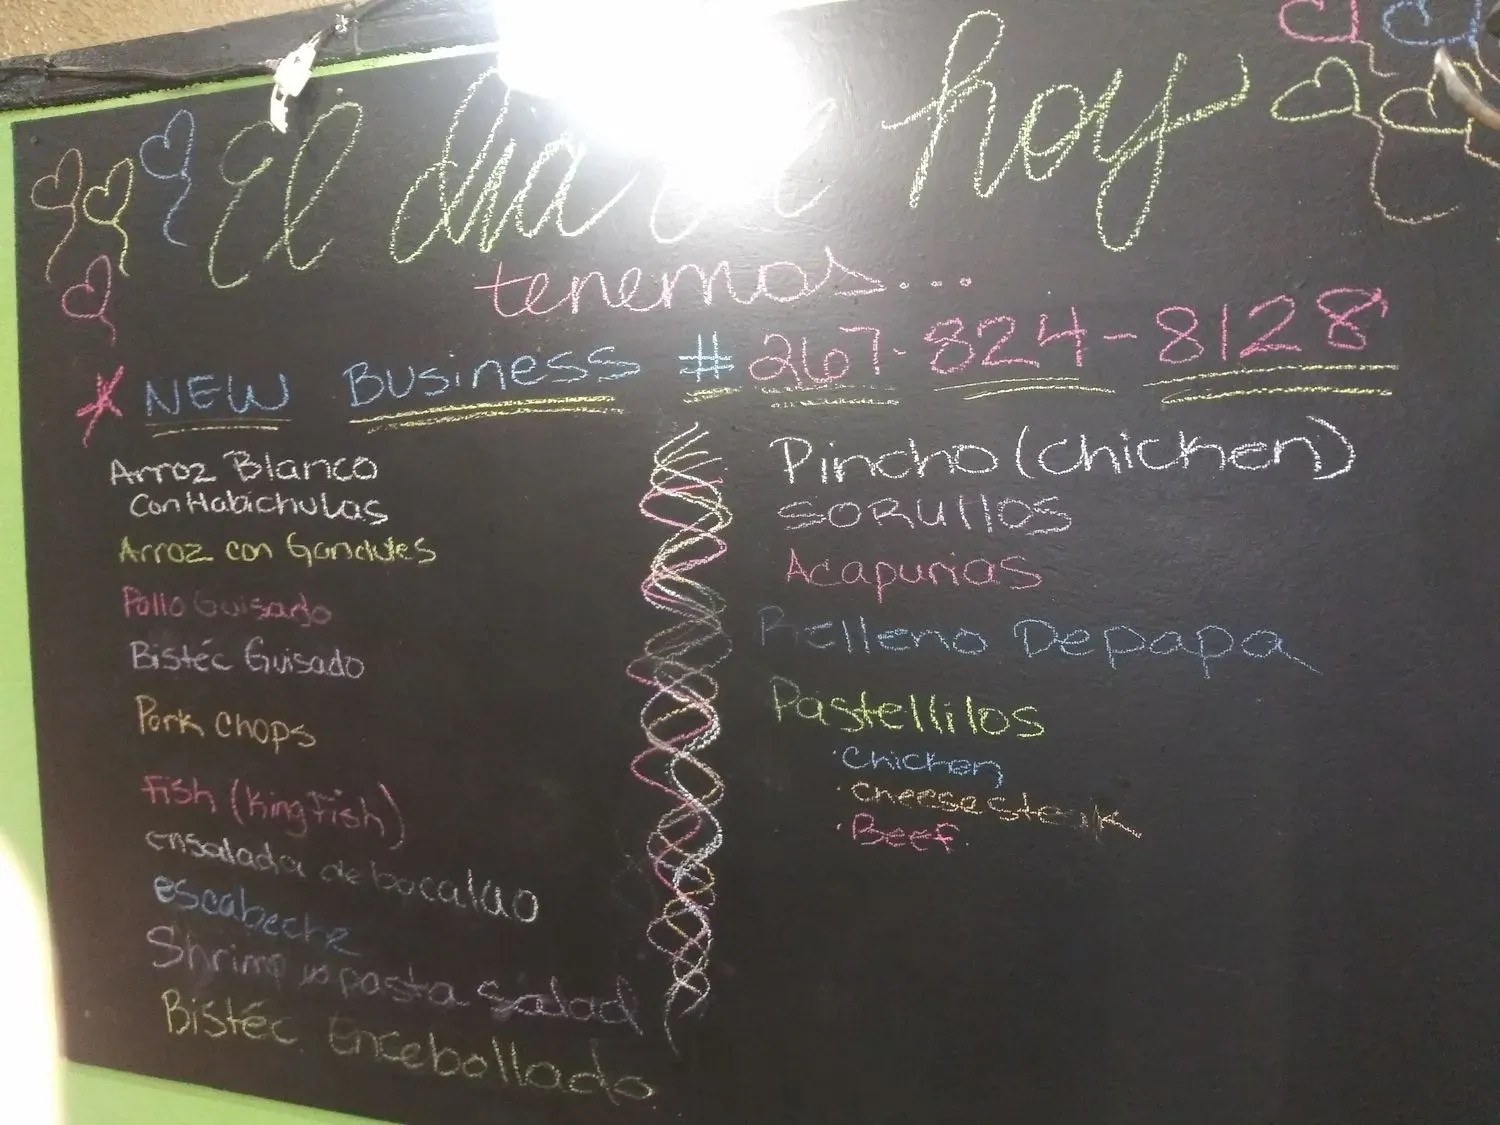 El dia de hoy
tenemos...
* NEW BUSINESS # 267-824-8128
Arroz Blanco
Con Habichulas
Arroz con Gandules
Pollo Guisado
Bistéc Guisado
Pork Chops
Fish (King Fish)
ensalada de bacalao
escabeche
Shrimp pasta salad
Bistéc Encebollado
Pincho (chicken)
SORUllOS
Acapurias
Relleno De papa
Pastellilos
·Chicken
·Cheese steak
·Beef